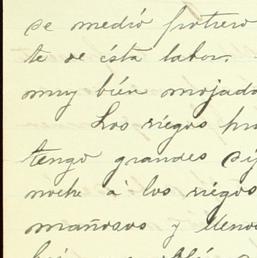 se medió potrero
te de ésta labor.
muy bién mojada
Los riegos
tengo grandes
noche á los riegos
mañosos y llenos